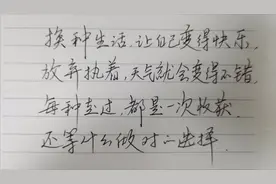 换种生活，让自己变得快乐，
放弃执着，天气就会变得不错，
每种走过，都是一次收获，
还等什么做对的选择